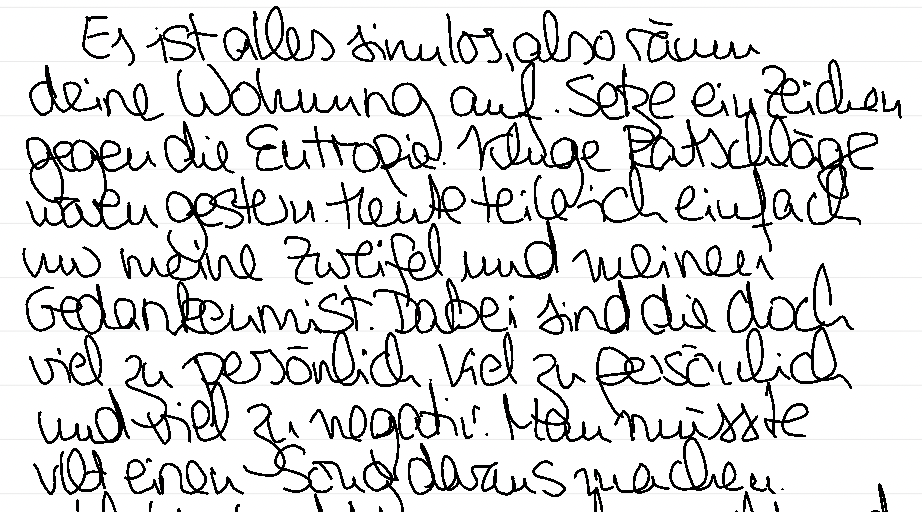 Es ist alles sinnlos, also räum
deine Wohnung auf. Setze ein Zeichen
gegen die Enttropie. Kluge Ratschläge
waren gestern. Heute teile ich einfach
nur meine Zweifel und meinen
Gedankenmist. Dabei sind die doch
viel zu persönlich. Viel zu persönlich
und viel zu negativ. Man müsste
vllt einen Song daraus machen.